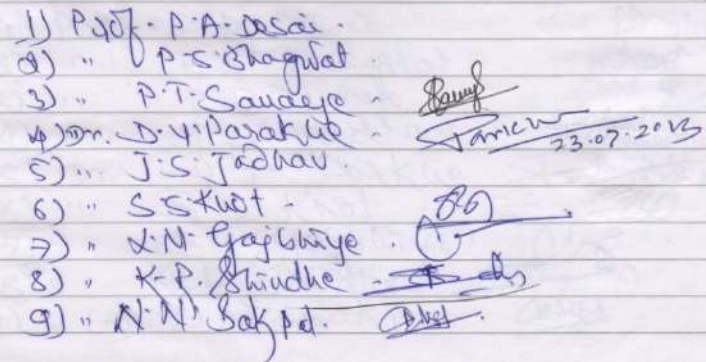 1) Prof. P.A. Desai.
2) " P.S. Bhagwat
3) " P.T. Sanaeye -
4) Dr. D.Y. Parakhe -
23.07.2013
5) " J.S. Jadhav.
6) " S.S. Khot -
7) " L.N. Gajbhiye.
8) " K.P. Shindhe -
9) " N.N. Sakpal.